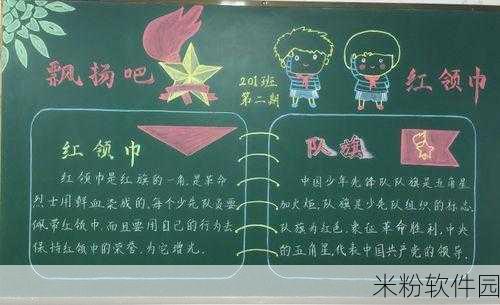 飘扬吧
201班
第二期
红领巾
红领巾
红领巾是红旗的一角,是革命
烈士用鲜血染成的。每个少先队员要
佩带红领巾,而且要用自己的行为去
保持红领巾的荣誉,为它增光。
队旗
中国少年先锋队队旗是五角星
加火炬,队旗是少先队组织的标志。
队旗为红色,象征革命胜利,中央
的五角星,代表中国共产党的领导。
米粉软件园